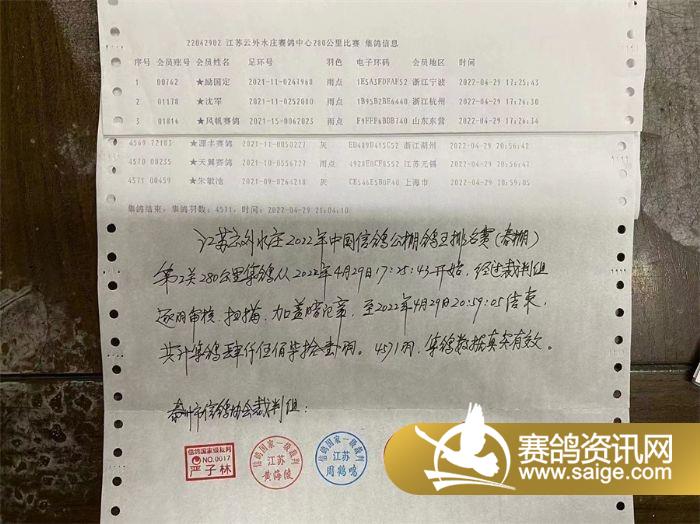 22042902 江苏云外水庄赛鸽中心280公里比赛 集鸽信息
序号 会员账号 会员姓名 足环号 羽色 电子环码 会员地区 时间
1 00762 ★励国定 2021-11-0247968 雨点 浙江宁波 2022-04-29 17:25:43
2 01178 ★沈军 2021-11-0252010 雨点 1B95B2BE6440 浙江杭州 2022-04-29 17:26:30
3 01814 ★风帆赛鸽 2021-15-0062023 雨点 山东东营 2022-04-29 17:26:34
4569 72103 ★源丰赛鸽 2021-11-0050227 灰 浙江湖州 2022-04-29 20:56:42
4570 00235 ★天翼赛鸽 2021-10-0556727 雨点 江苏无锡 2022-04-29 20:56:47
4571 00459 ★朱敏池 2021-09-0264218 灰 上海市 2022-04-29 20:59:05
集鸽结束, 集鸽羽数: 4571, 2022-04-29 21:04:10
江苏云外水庄2022年中国信鸽公棚鸽王排名赛(春棚)
第2关280公里集鸽从2022年4月29日17:25:43开始,经过裁判组
逐羽审核、扫描、加盖暗记章,至2022年4月29日20:59:05结束,
共计集鸽肆仟伍佰柒拾壹羽。4571羽,集鸽数据真实有效。
泰州市信鸽协会裁判组:
信鸽国家级裁判
NO.0017
严子林
信鸽国家一级裁判
江苏
黄海陵
信鸽国家一级裁判
江苏
周鹤鸣
赛鸽资讯网
www.saige.com